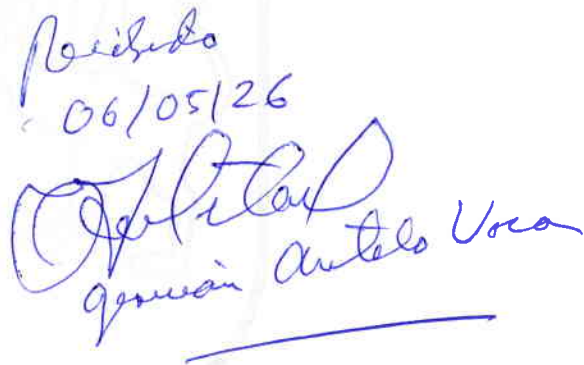 Recibido
06/05/26
germán Antelo Vaca